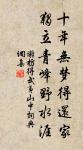 十年無夢得還家
獨立青峰野水涯
謝枋得武夷山中詞典